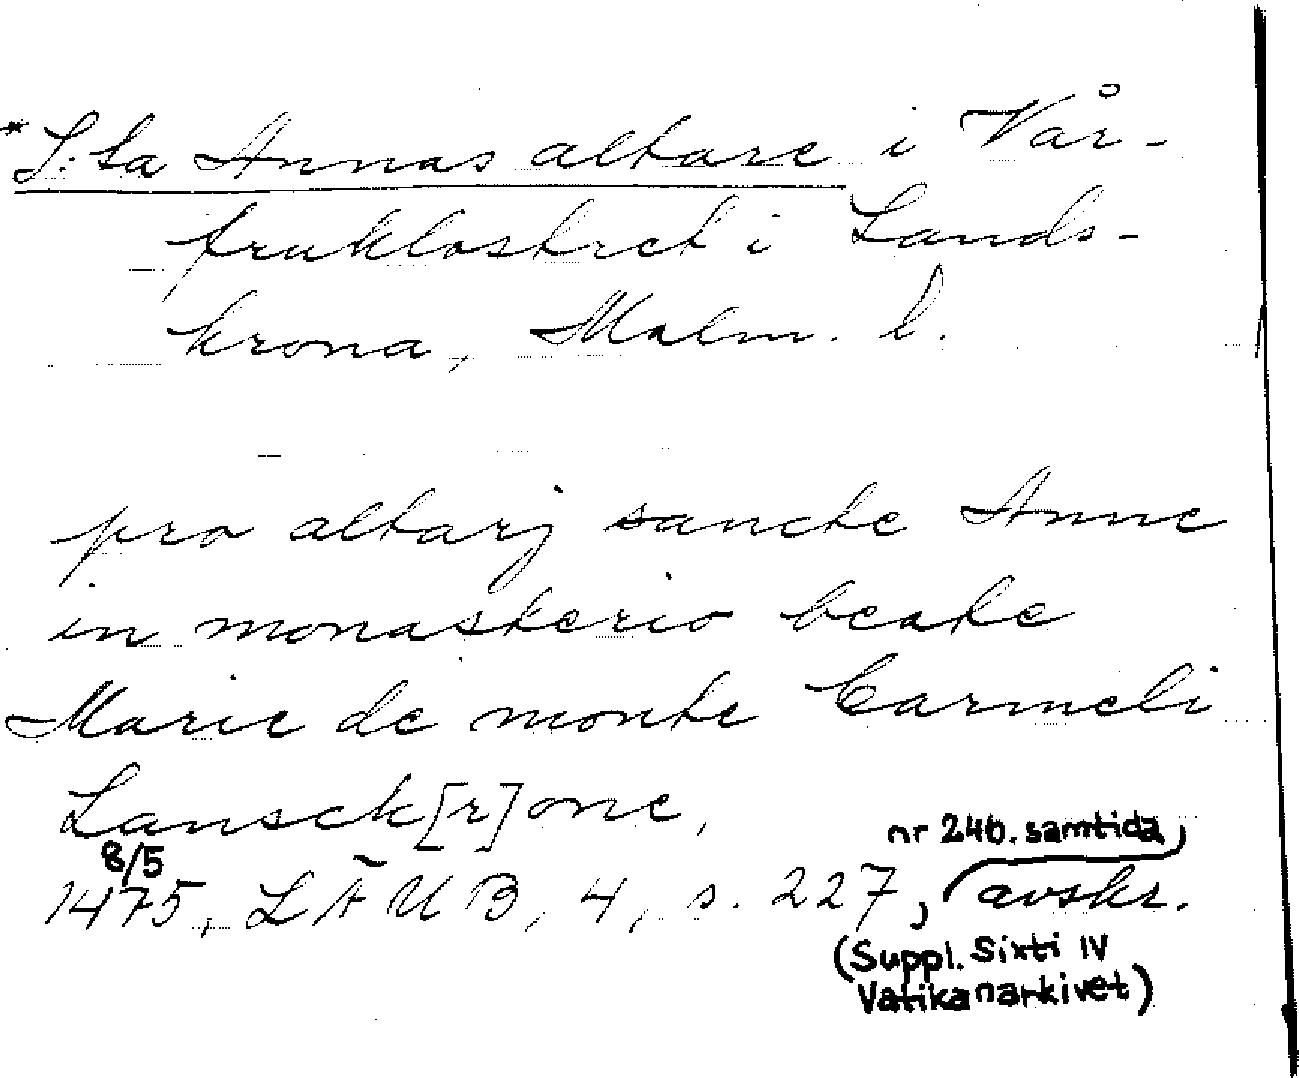 *S:ta Annas altare i Vår-
fruklostret i Lands-
krona, Malm. l.
pro altarj sancte Anne
in monasterio beate
Marie de monte Carmeli
Lansck[r]one,
nr 240. samtida,
8/5
1475, LÄUB, 4, s. 227, avskr.
(Suppl. Sixti IV
Vatikanarkivet)